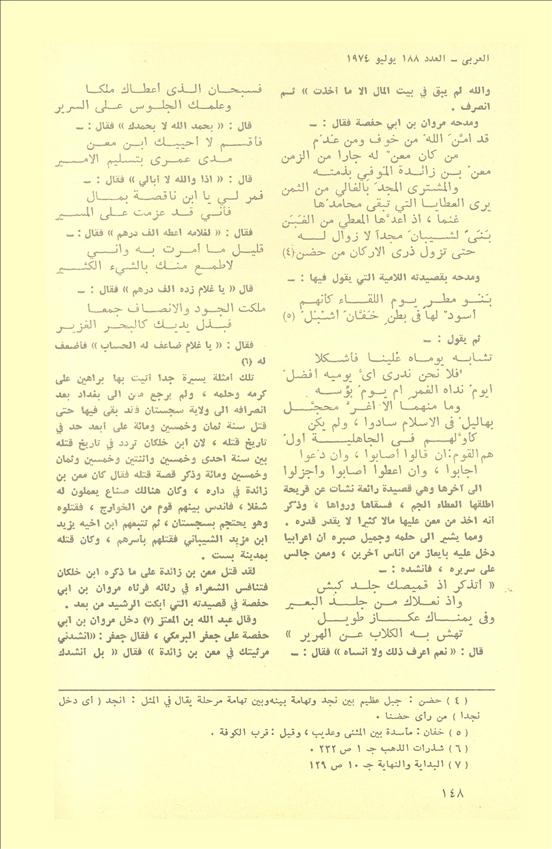 العربى ــ العدد ١٨٨ يوليو ١٩٧٤
والله لم يبق في بيت المال الا ما اخذت » ثم
انصرف .
ومدحه مروان بن ابي حفصة فقال : ــ
قد امّن الله من خوف ومن عدم
من كان معن له جارا من الزمن
معن بن زائدة الموفي بذمته
والمشتري المجد بالغالي من الثمن
يرى العطايا التي تبقى محامدها
غنما ، اذ اعدها المعطي من الغبن
بنى لشيبان مجدا لا زوال له
حتى تزول ذرى الاركان من حضن (٤)
ومدحه بقصيدته اللامية التي يقول فيها : ــ
بنو مطر يوم اللقاء كانهم
اسود لها في بطن خفان اشبل (٥)
ثم يقول : ــ
تشابه يوماه علينا فأشكلا
فلا نحن ندرى اى يوميه افضل
ايوم نداه الغمر ام يوم بؤسه
وما منهما الا اغر محجل
بهاليل في الاسلام سادوا ، ولم يكن
كأولهم في الجاهلية اول
هم القوم : ان قالوا أصابوا ، وان دعوا
اجابوا ، وان اعطوا اصابوا واجزلوا
الى آخرها وهي قصيدة رائعة نشات عن قريحة
اطلقها العطاء الجم ، فسقاها ورواها ، وذكر
انه اخذ من معن عليها مالا كثيرا لا يقدر قدره .
ومما يشير الى حلمه وجميل صبره ان اعرابيا
دخل عليه بايعاز من اناس آخرين ، ومعن جالس
على سريره ، فانشده : ــ
« أتذكر اذ قميصك جلد كبش
واذ نعلاك من جلد البعير
وفى يمناك عكاز طويل
تهش به الكلاب عن الهرير »
قال : « نعم اعرف ذلك ولا انساه » فقال : ــ
فسبحان الذى أعطاك ملكا
وعلمك الجلوس على السرير
قال : « بحمد الله لا بحمدك » فقال : ــ
فأقسم لا أحييك ابن معن
مدى عمرى بتسليم الامير
قال : « اذا والله لا أبالي » فقال : ــ
فمر لي يا ابن ناقصة بمال
فأني قد عزمت على المسير
فقال : « لغلامه اعطه الف درهم » فقال : ــ
قليل ما أمرت به واني
لاطمع منك بالشيء الكثير
قال « يا غلام زده الف درهم » فقال : ــ
ملكت الجود والانصاف جمعا
فبذل يديك كالبحر الغزير
فقال : « يا غلام ضاعف له الحساب » فأضعف
له (٦)
تلك امثلة يسيرة جدا اتيت بها براهين على
كرمه وحلمه ، ولم يرجع معن الى بغداد بعد
انصرافه الى ولاية سجستان فقد بقى فيها حتى
قتل سنة ثمان وخمسين ومائة على أبعد حد في
تاريخ قتله ، لان ابن خلكان تردد في تاريخ قتله
بين سنة احدى وخمسين واثنتين وخمسين وثمان
وخمسين ومائة وذكر قصة قتله فقال كان معن بن
زائدة في داره ، وكان هنالك صناع يعملون له
شغلا ، فاندس بينهم قوم من الخوارج ، فقتلوه
وهو يحتجم بسجستان ، ثم تتبعهم ابن اخيه يزيد
ابن مزيد الشيباني فقتلهم بأسرهم ، وكان قتله
بمدينة بست .
لقد قتل معن بن زائدة على ما ذكره ابن خلكان
فتنافس الشعراء في رثائه فرثاه مروان بن أبي
حفصة في قصيدته التي أبكت الرشيد من بعد .
وقال عبد الله بن المعتز (٧) دخل مروان بن ابي
حفصة على جعفر البرمكي ، فقال جعفر : «انشدني
مرثيتك في معن بن زائدة » فقال « بل انشدك
( ٤ ) حضن : جبل عظيم بين نجد وتهامة بينه وبين تهامة مرحلة يقال في المثل : انجد ( أى دخل
نجدا ) من رأى حضنا .
( ٥ ) خفان : مأسدة بين المثنى وعذيب ، وقيل : قرب الكوفة .
( ٦ ) شذرات الذهب جـ ١ ص ٢٣٢ .
( ٧ ) البداية والنهاية جـ ١٠ ص ١٢٩
١٤٨